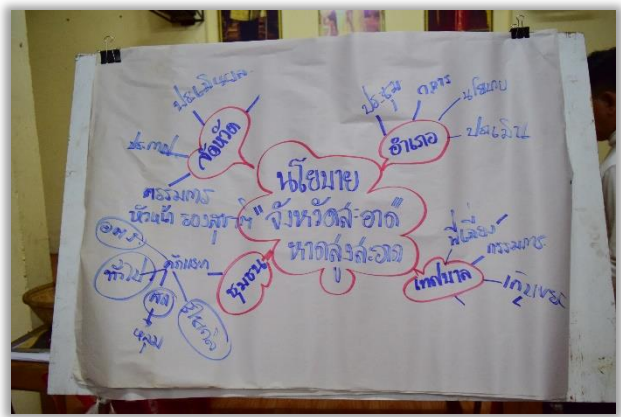 นโยบาย
"จังหวัดสะอาด"
หาดสูงสะอาด
จังหวัด
ประเมินผล
ประกาศ
กรรมการ
หัวหน้า
อำเภอ
ประชุม
นโยบาย
ประเมิน
เทศบาล
พี่เลี้ยง
กรรมการ
เก็บขยะ
ชุมชน
คัดแยก
ทั่วไป
หลุม
รีไซเคิล